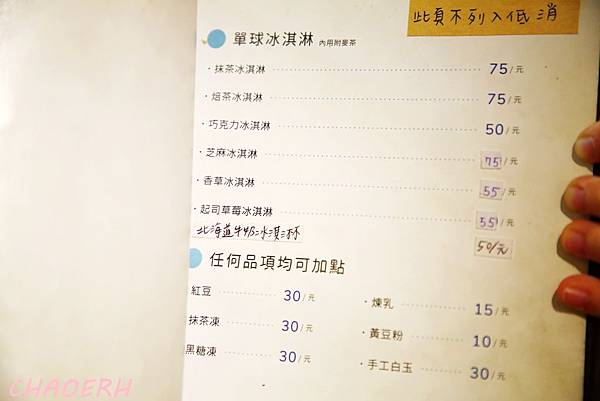 此頁不列入低消
單球冰淇淋 內用附麥茶
·抹茶冰淇淋 75/元
·焙茶冰淇淋 75/元
·巧克力冰淇淋 50/元
·芝麻冰淇淋 75/元
·香草冰淇淋 55/元
·起司草莓冰淇淋 55/元
北海道牛奶冰淇淋 50/元
任何品項均可加點
紅豆 30/元
抹茶凍 30/元
黑糖凍 30/元
·煉乳 15/元
·黃豆粉 10/元
·手工白玉 30/元
CHAOERH